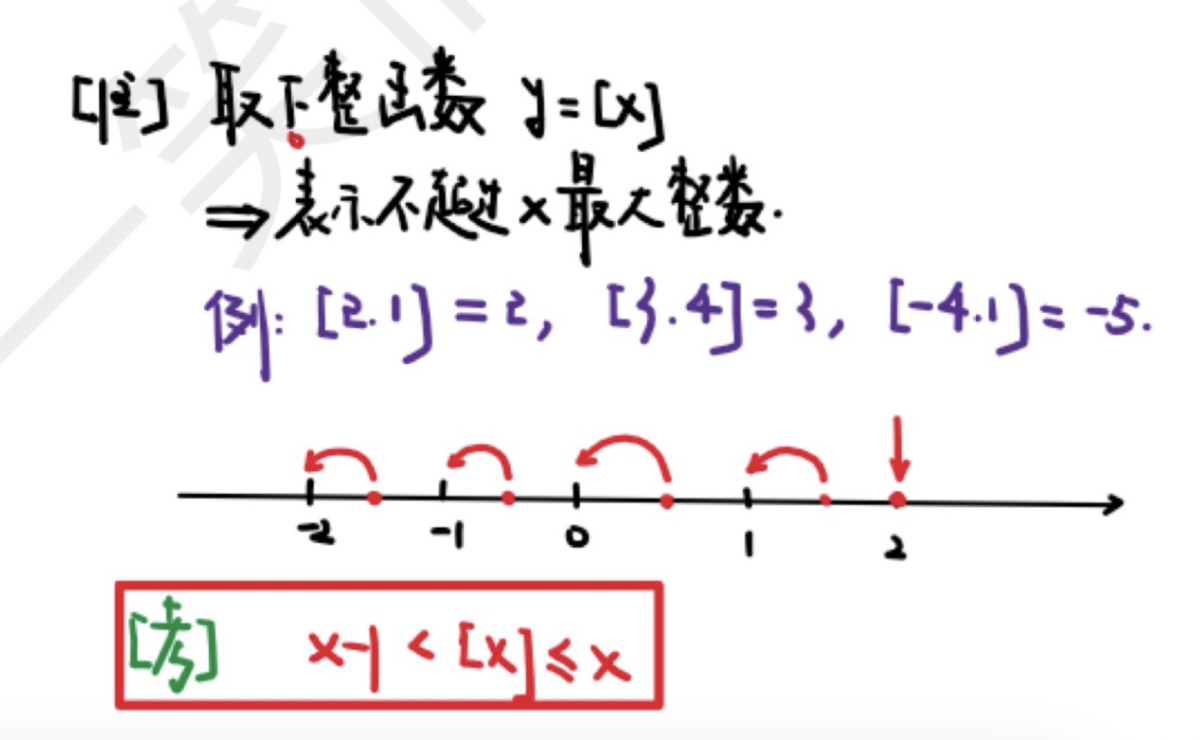 [注] 取下整函数 y=[x]
⇒表示不超过x最大整数.
例: [2.1]=2, [3.4]=3, [-4.1]=-5.
-2 -1 0 1 2
[考] x-1<[x]≤x